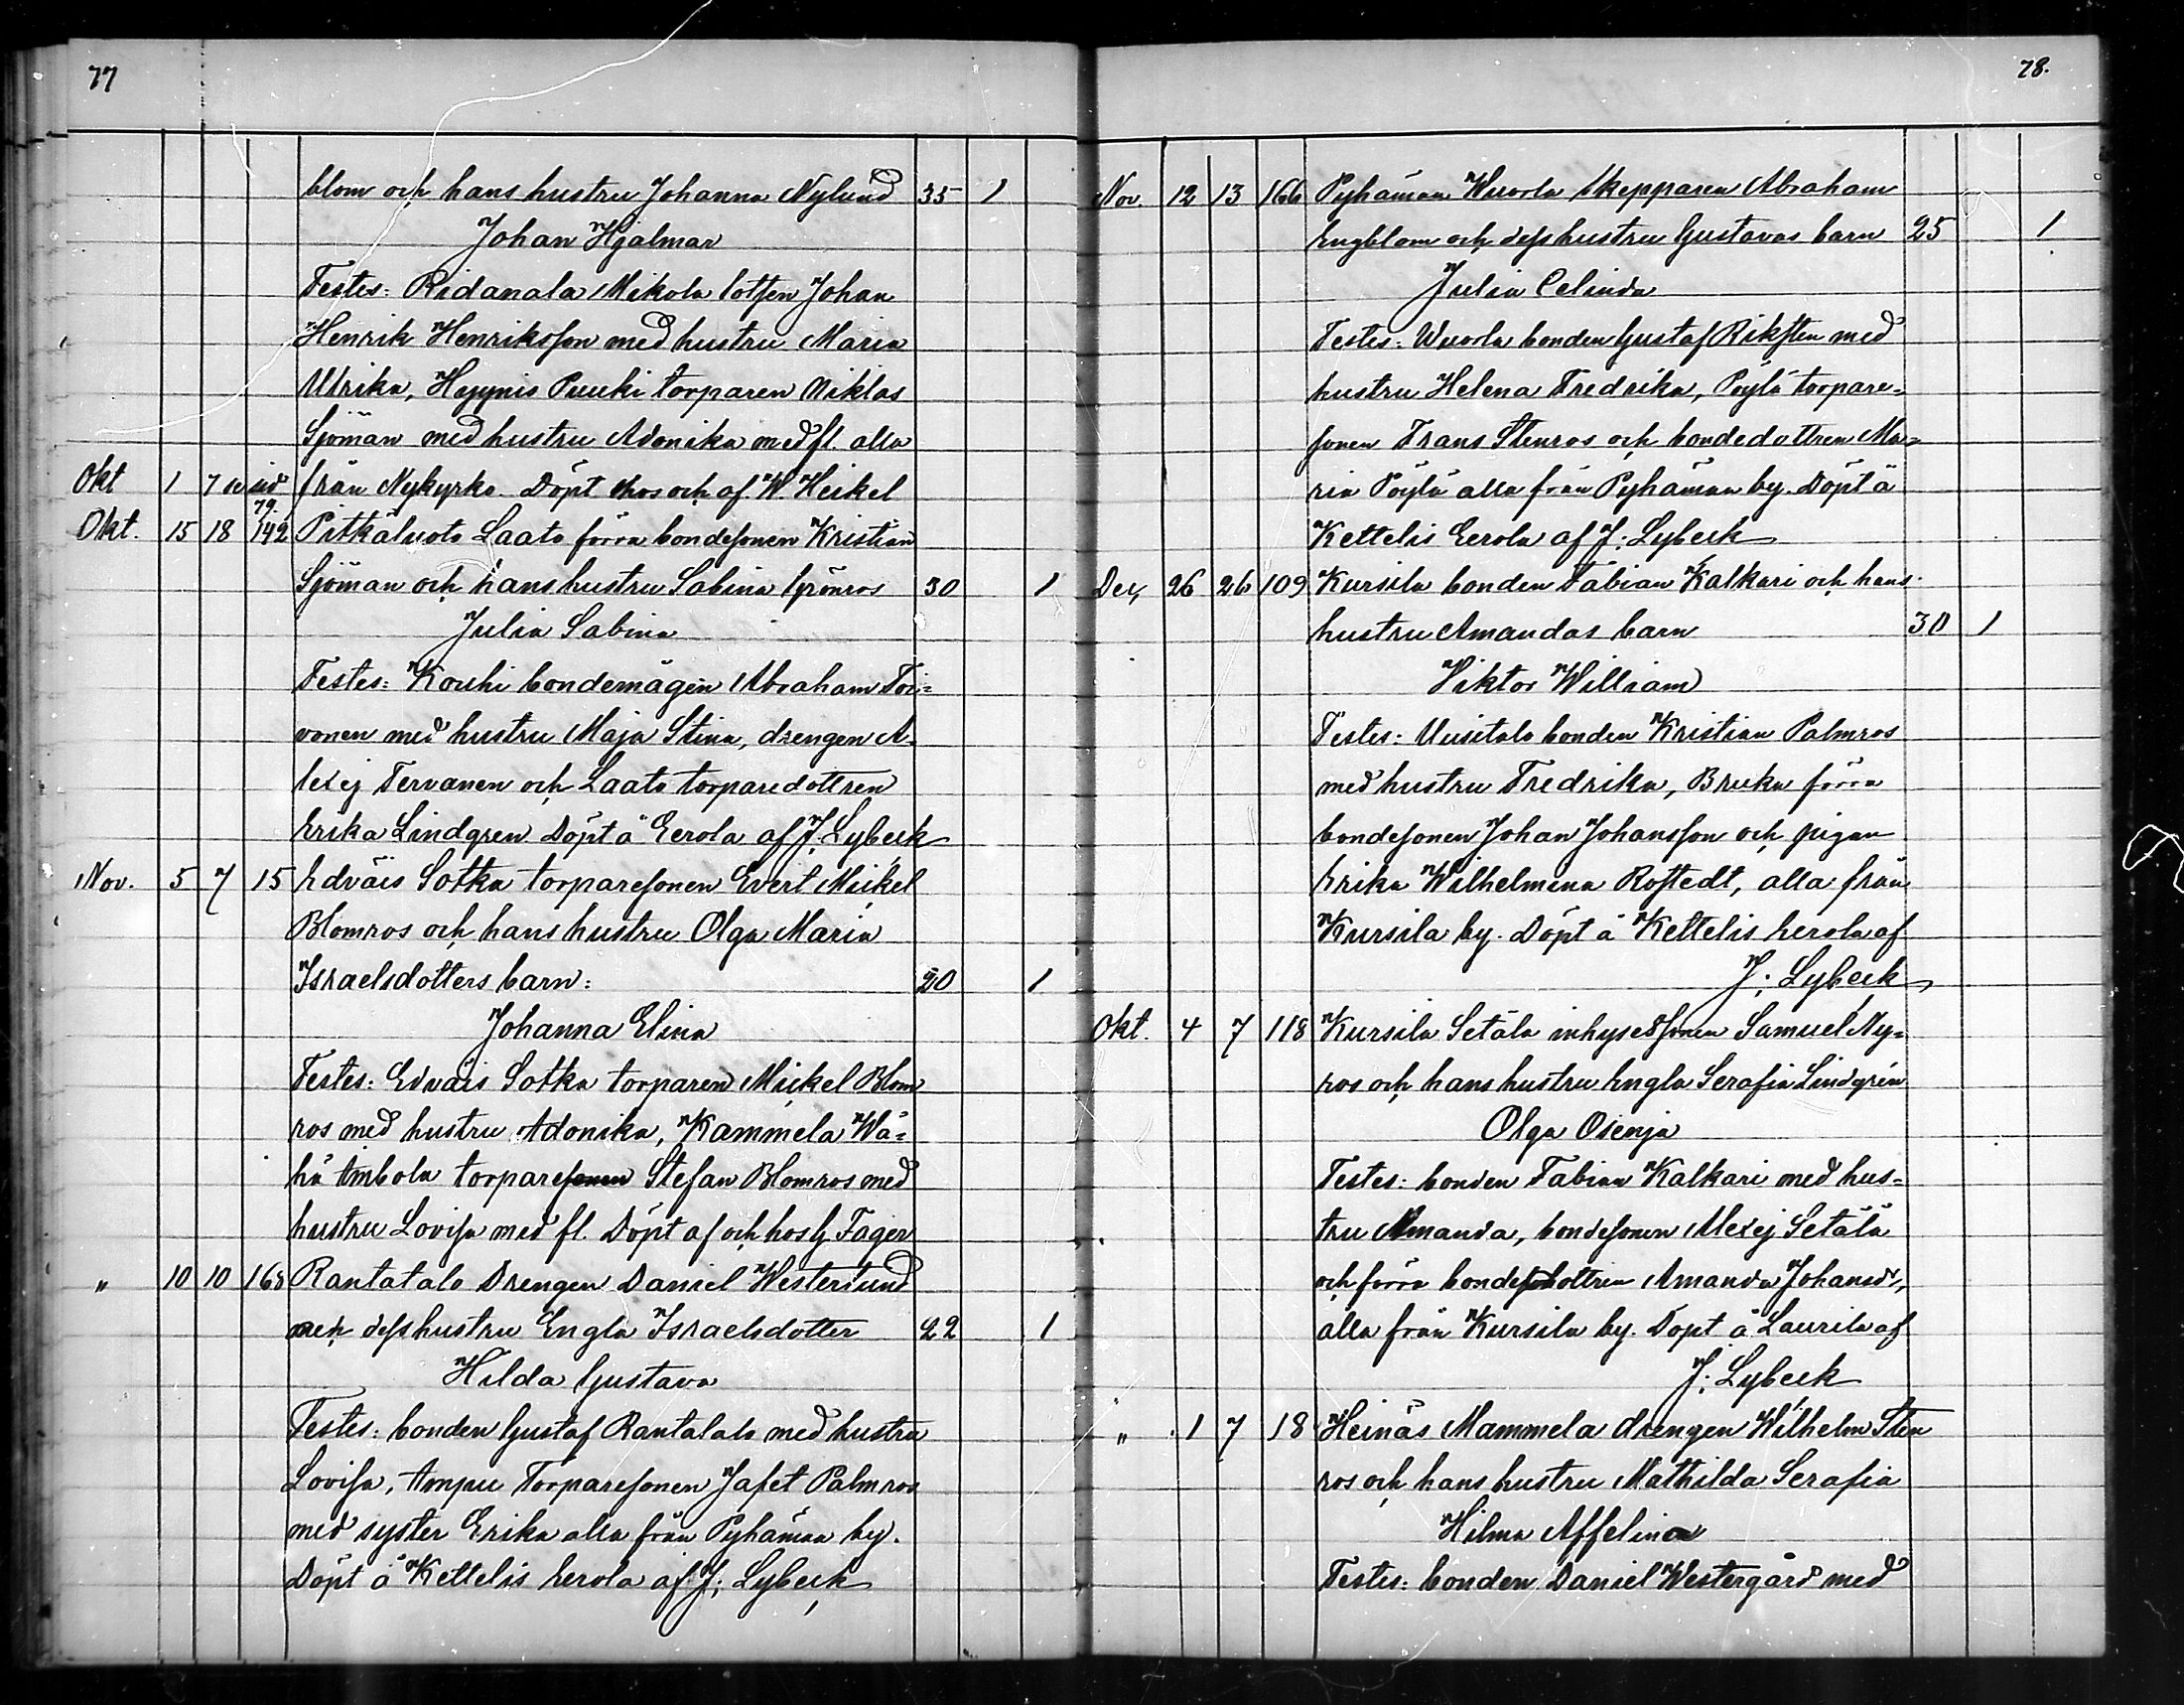 77
blom och hans hustru Johanna Nylund 35 1
Johan Hjalmar
Testes: Ridanala Mikola lotsen Johan
Henrik Henriksson med hustru Maria
Ulrika, Heppnis Puuki torparen Niklas
Sjöman med hustru Adonika med fl. alla
Okt 1 7 se sid 79. från Nykyrko. Döpt hos och af W. Heikel
Okt. 15 18 142 Pitkäluoto Laato förra bondesonen Kristian
Sjöman och hans hustru Sabina Grönros 30 1
Julia Sabina
Testes: Kouhi bondemågen Abraham Toi=
vonen med hustru Maja Stina, drengen A-
lexej Tervanen och Laato torparedottren
Erika Lindgren. Döpt å Eerola af J. Lybeck
Nov. 5 7 15 Edväis Sotka torparesonen Evert Mickel
Blomros och hans hustru Olga Maria
Israelsdotters barn: 20 1
Johanna Elina
Testes: Edväis Sotka torparen Mickel Blom
ros med hustru Adonika, Kammela Wä=
hä Ambola torparesonen Stefan Blomros med
hustru Lovisa med fl. Döpt af och hos G. Fager
" 10 10 168 Rantatalo Drengen Daniel Westerlund
och dess hustru Engla Israelsdotter 22 1
Hilda Gustava
Testes: bonden Gustaf Rantatalo med hustru
Lovisa, Ampu Torparesonen Jafet Palmros
med syster Erika alla från Pyhämaa by.
Döpt å Kettelis Eerola af J. Lybeck
78.
Nov. 12 13 166 Pyhämaa Wuorla skepparen Abraham
Engblom och dess hustru Gustavas barn 25 1
Julia Celinda
Testes: Wuorla bonden Gustaf Riksten med
hustru Helena Fredrika, Pöylä torpare=
sonen Frans Stenros och bondedottren Ma=
ria Pöylä alla från Pyhämaa by. Döpt å
Kettelis Eerola af J. Lybeck
Dec, 26 26 109 Kursila bonden Fabian Kalkari och hans
hustru Amandas barn 30 1
Viktor William
Testes: Uusitalo bonden Kristian Palmros
med hustru Fredrika, Bruka förra
bondesonen Johan Johansson och pigan
Erika Wilhelmina Rostedt, alla från
Kursila by. Döpt å Kettelis Eerola af
J. Lybeck
Okt. 4 7 118 Kursila Setäla inhysessonen Samuel Ny=
ros och hans hustru Engla Serafia Lindgrén
Olga Osenja
Testes: bonden Fabian Kalkari med hus=
tru Amanda, bondesonen Alexej Setälä
och förra bondedottren Amanda Johansdr,
alla från Kursila by. Döpt å Laurila af
J. Lybeck
" 1 7 18 Heinäs Mammela drengen Wilhelm Sten
ros och hans hustru Mathilda Serafia
Hilma Affelina
Testes: bonden Daniel Westergård med